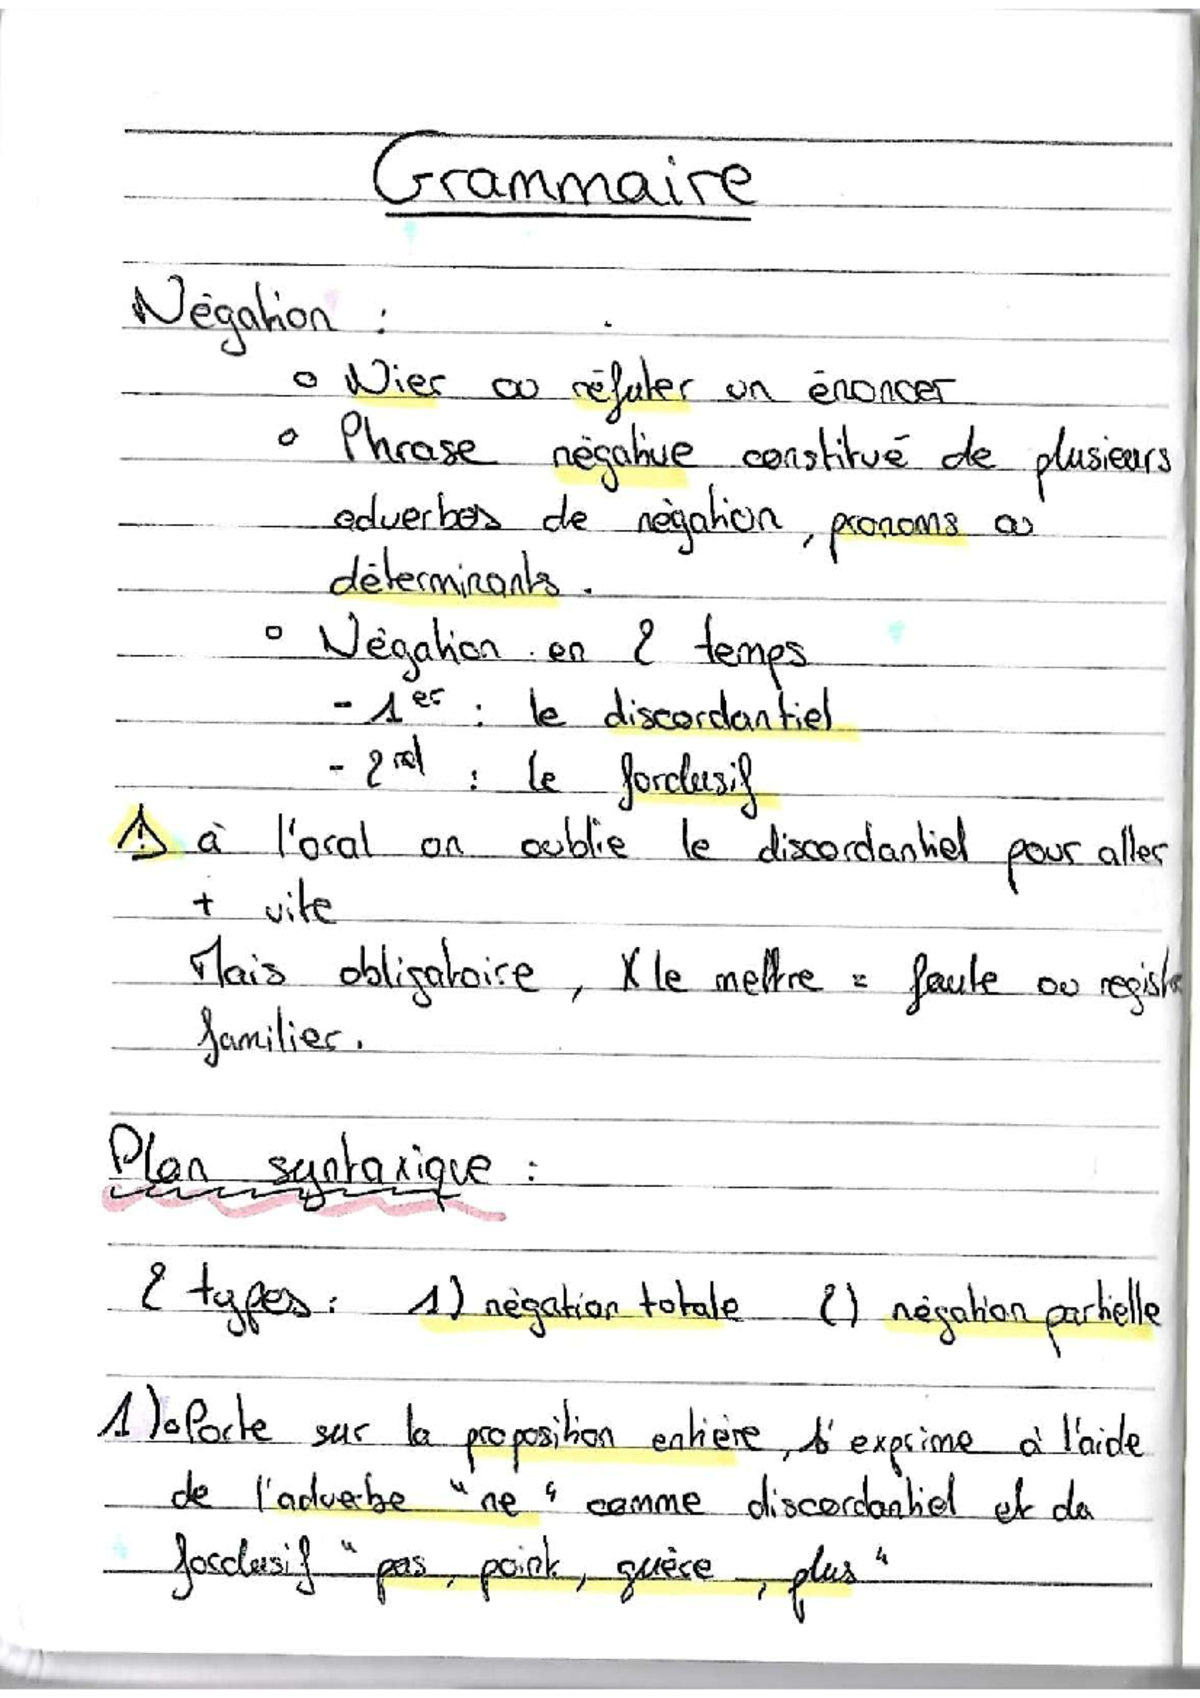 Grammaire
Négation :
o Nier ou réfuter un énoncer
o Phrase négative constitué de plusieurs
adverbes de négation, pronoms ou
déterminants.
o Négation en 2 temps
- 1er : le discordantiel
- 2nd : le forclusif
⚠ à l'oral on oublie le discordantiel pour aller
+ vite
Mais obligatoire, X le mettre = faute ou registre
familier.
Plan syntaxique :
2 types : 1) négation totale 2) négation partielle
1) o Porte sur la proposition entière, s'exprime à l'aide
de l'adverbe "ne" comme discordantiel et du
forclusif "pas, point, guère, plus"